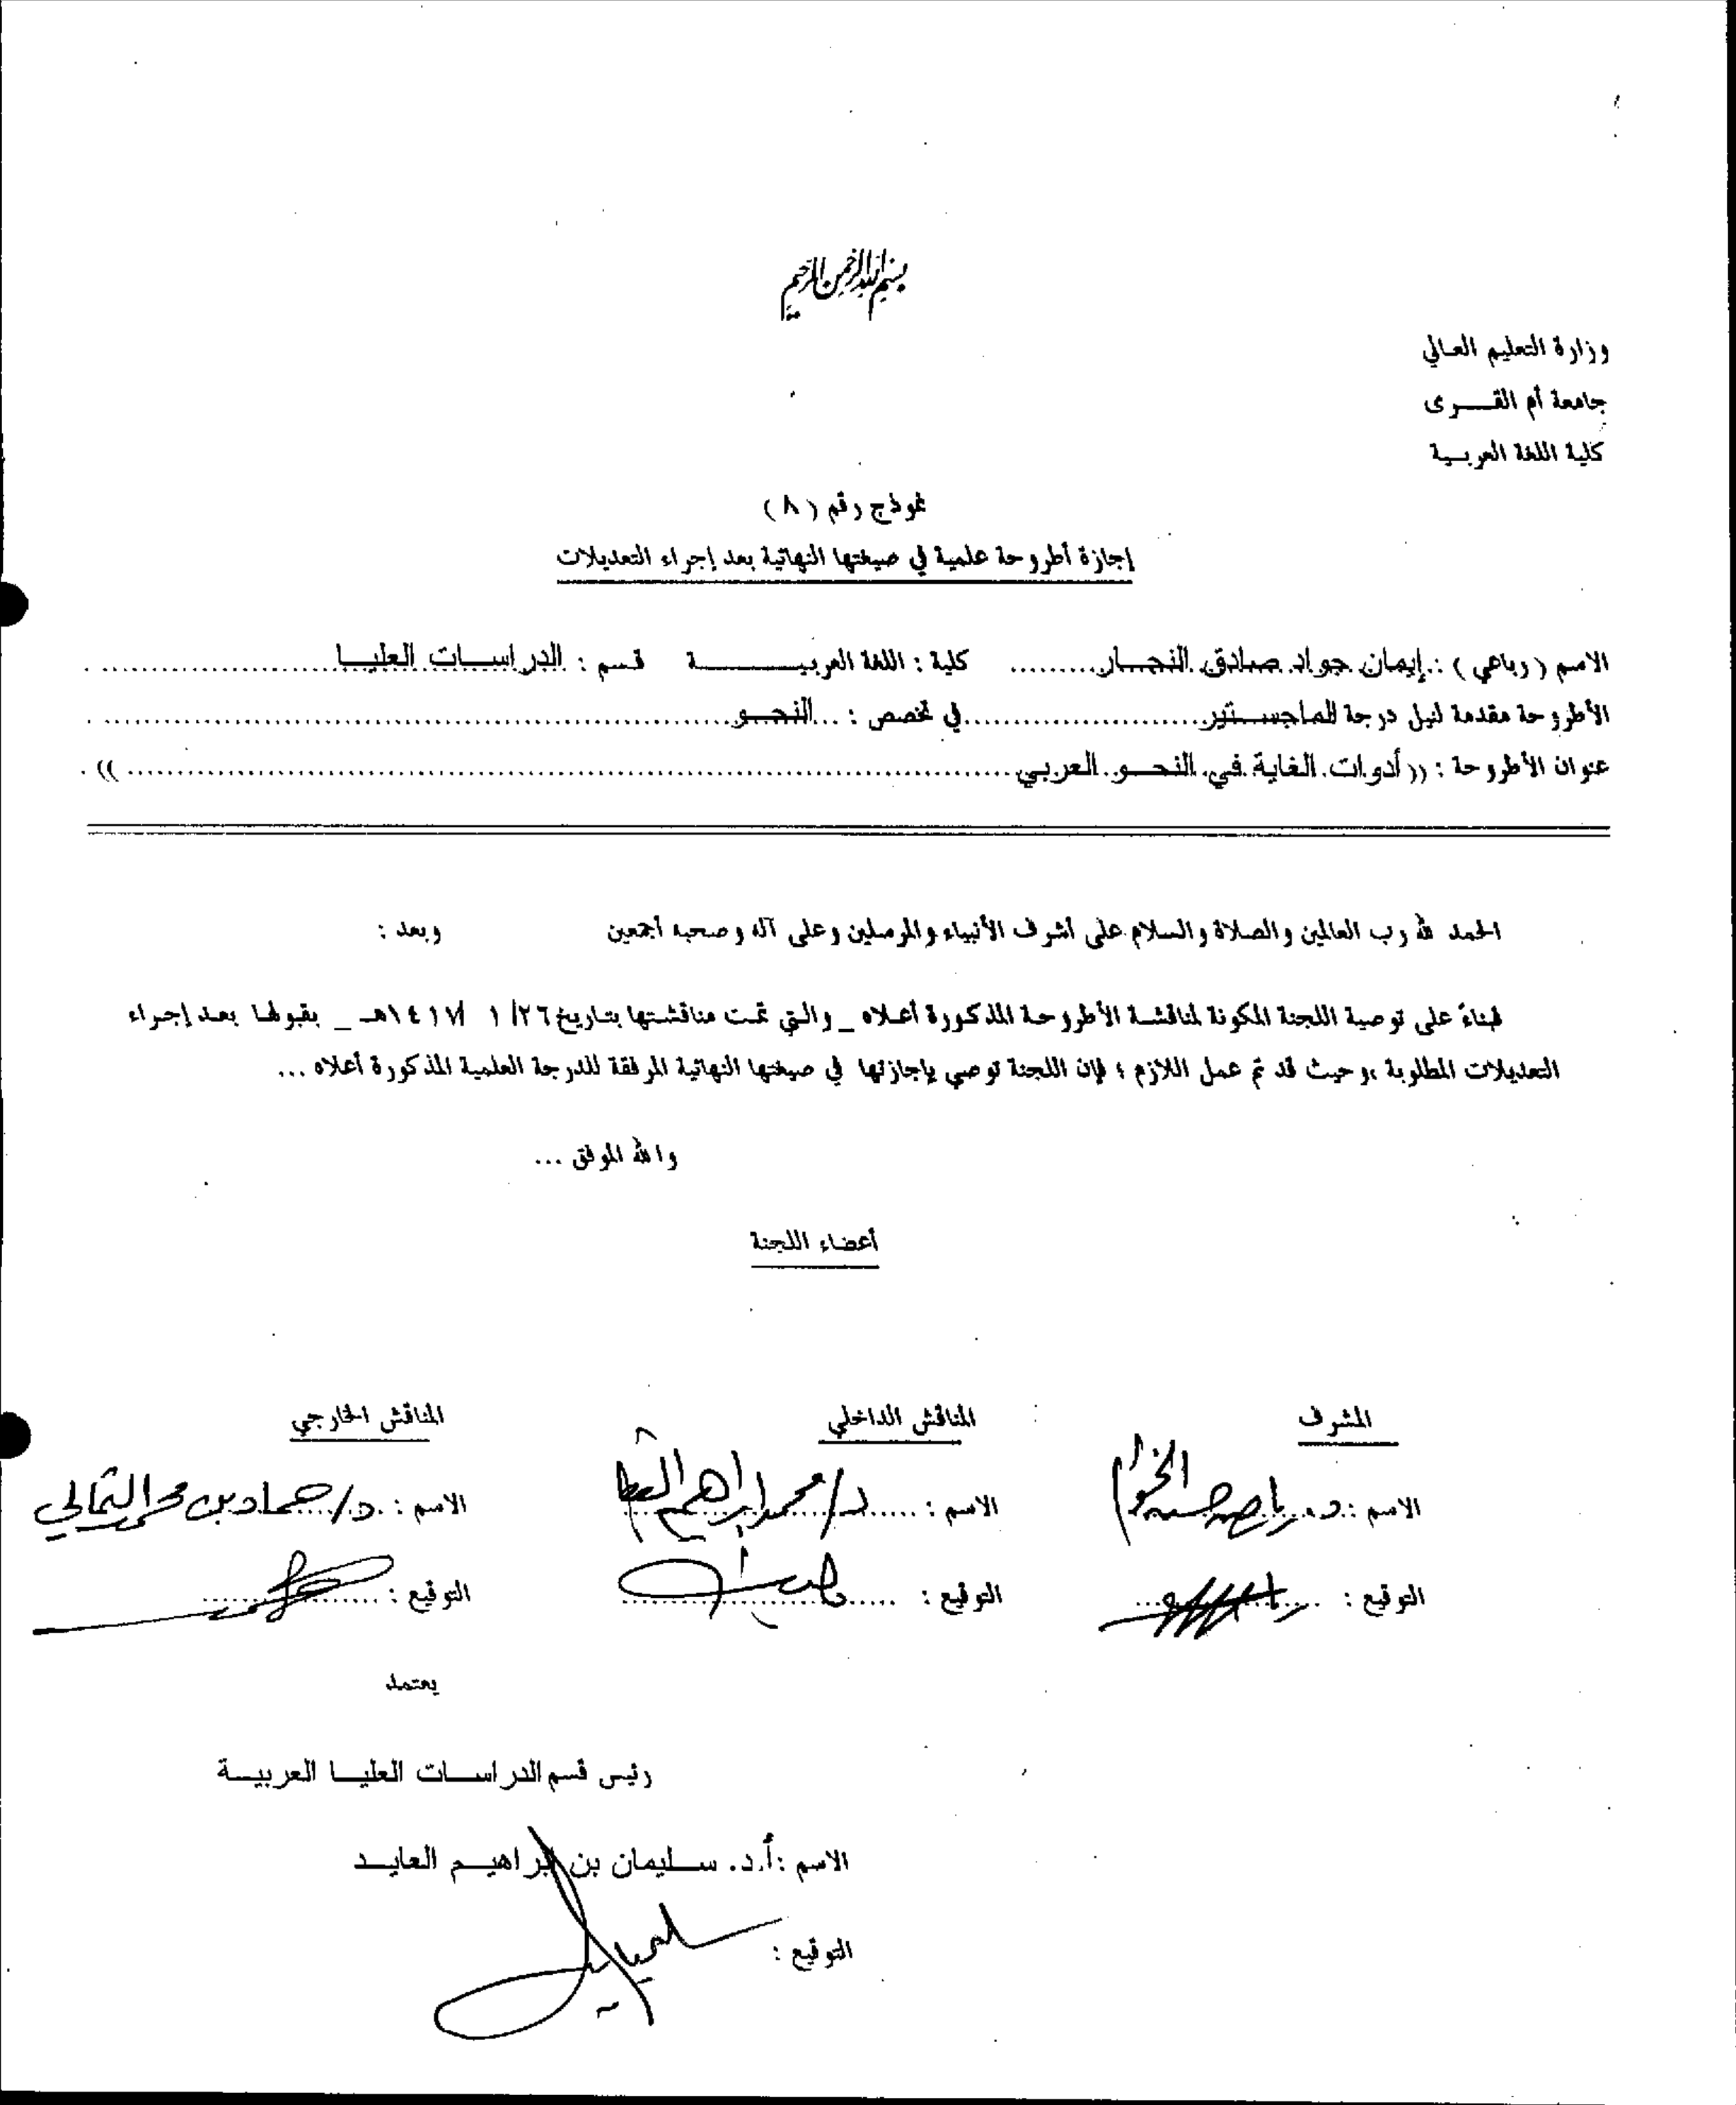 بسم الله الرحمن الرحيم
وزارة التعليم العالي
جامعة أم القـــرى
كلية اللغة العربـية
نموذج رقم ( ٨ )
إجازة أطروحة علمية في صيغتها النهائية بعد إجراء التعديلات
الاسم ( رباعي ) : إيمان جواد صادق النجـار كلية : اللغة العربيـــــة قسم : الدراسـات العليـا
الأطروحة مقدمة لنيل درجة الماجسـتير في تخصص : النحـو
عنوان الأطروحة : (( أدوات الغاية في النحـو العربي ))
الحمد لله رب العالمين والصلاة والسلام على أشرف الأنبياء والمرسلين وعلى آله وصحبه أجمعين وبعد :
فبناءً على توصية اللجنة المكونة لمناقشـة الأطروحـة المذكورة أعـلاه _ والتي تمـت مناقشـتها بتـاريخ ٢٦/ ١ /١٤١٧هـ _ بقبولهـا بعـد إجـراء
التعديلات المطلوبة ،وحيث قد تم عمل اللازم ؛ فإن اللجنة توصي بإجازتها في صيغتها النهائية المرفقة للدرجة العلمية المذكورة أعلاه ...
والله الموفق ...
أعضاء اللجنة
المشرف المناقش الداخلي المناقش الخارجي
الاسم : د. رياض حسن الخوام الاسم : د/ محمد إبراهيم العطا الاسم : د/ حماد بن محمد الثمالي
التوقيع : التوقيع : التوقيع :
يعتمد
رئيس قسم الدراسـات العليـا العربيـة
الاسم : أ.د. سـليمان بن إبراهيـم العايـد
التوقيع :